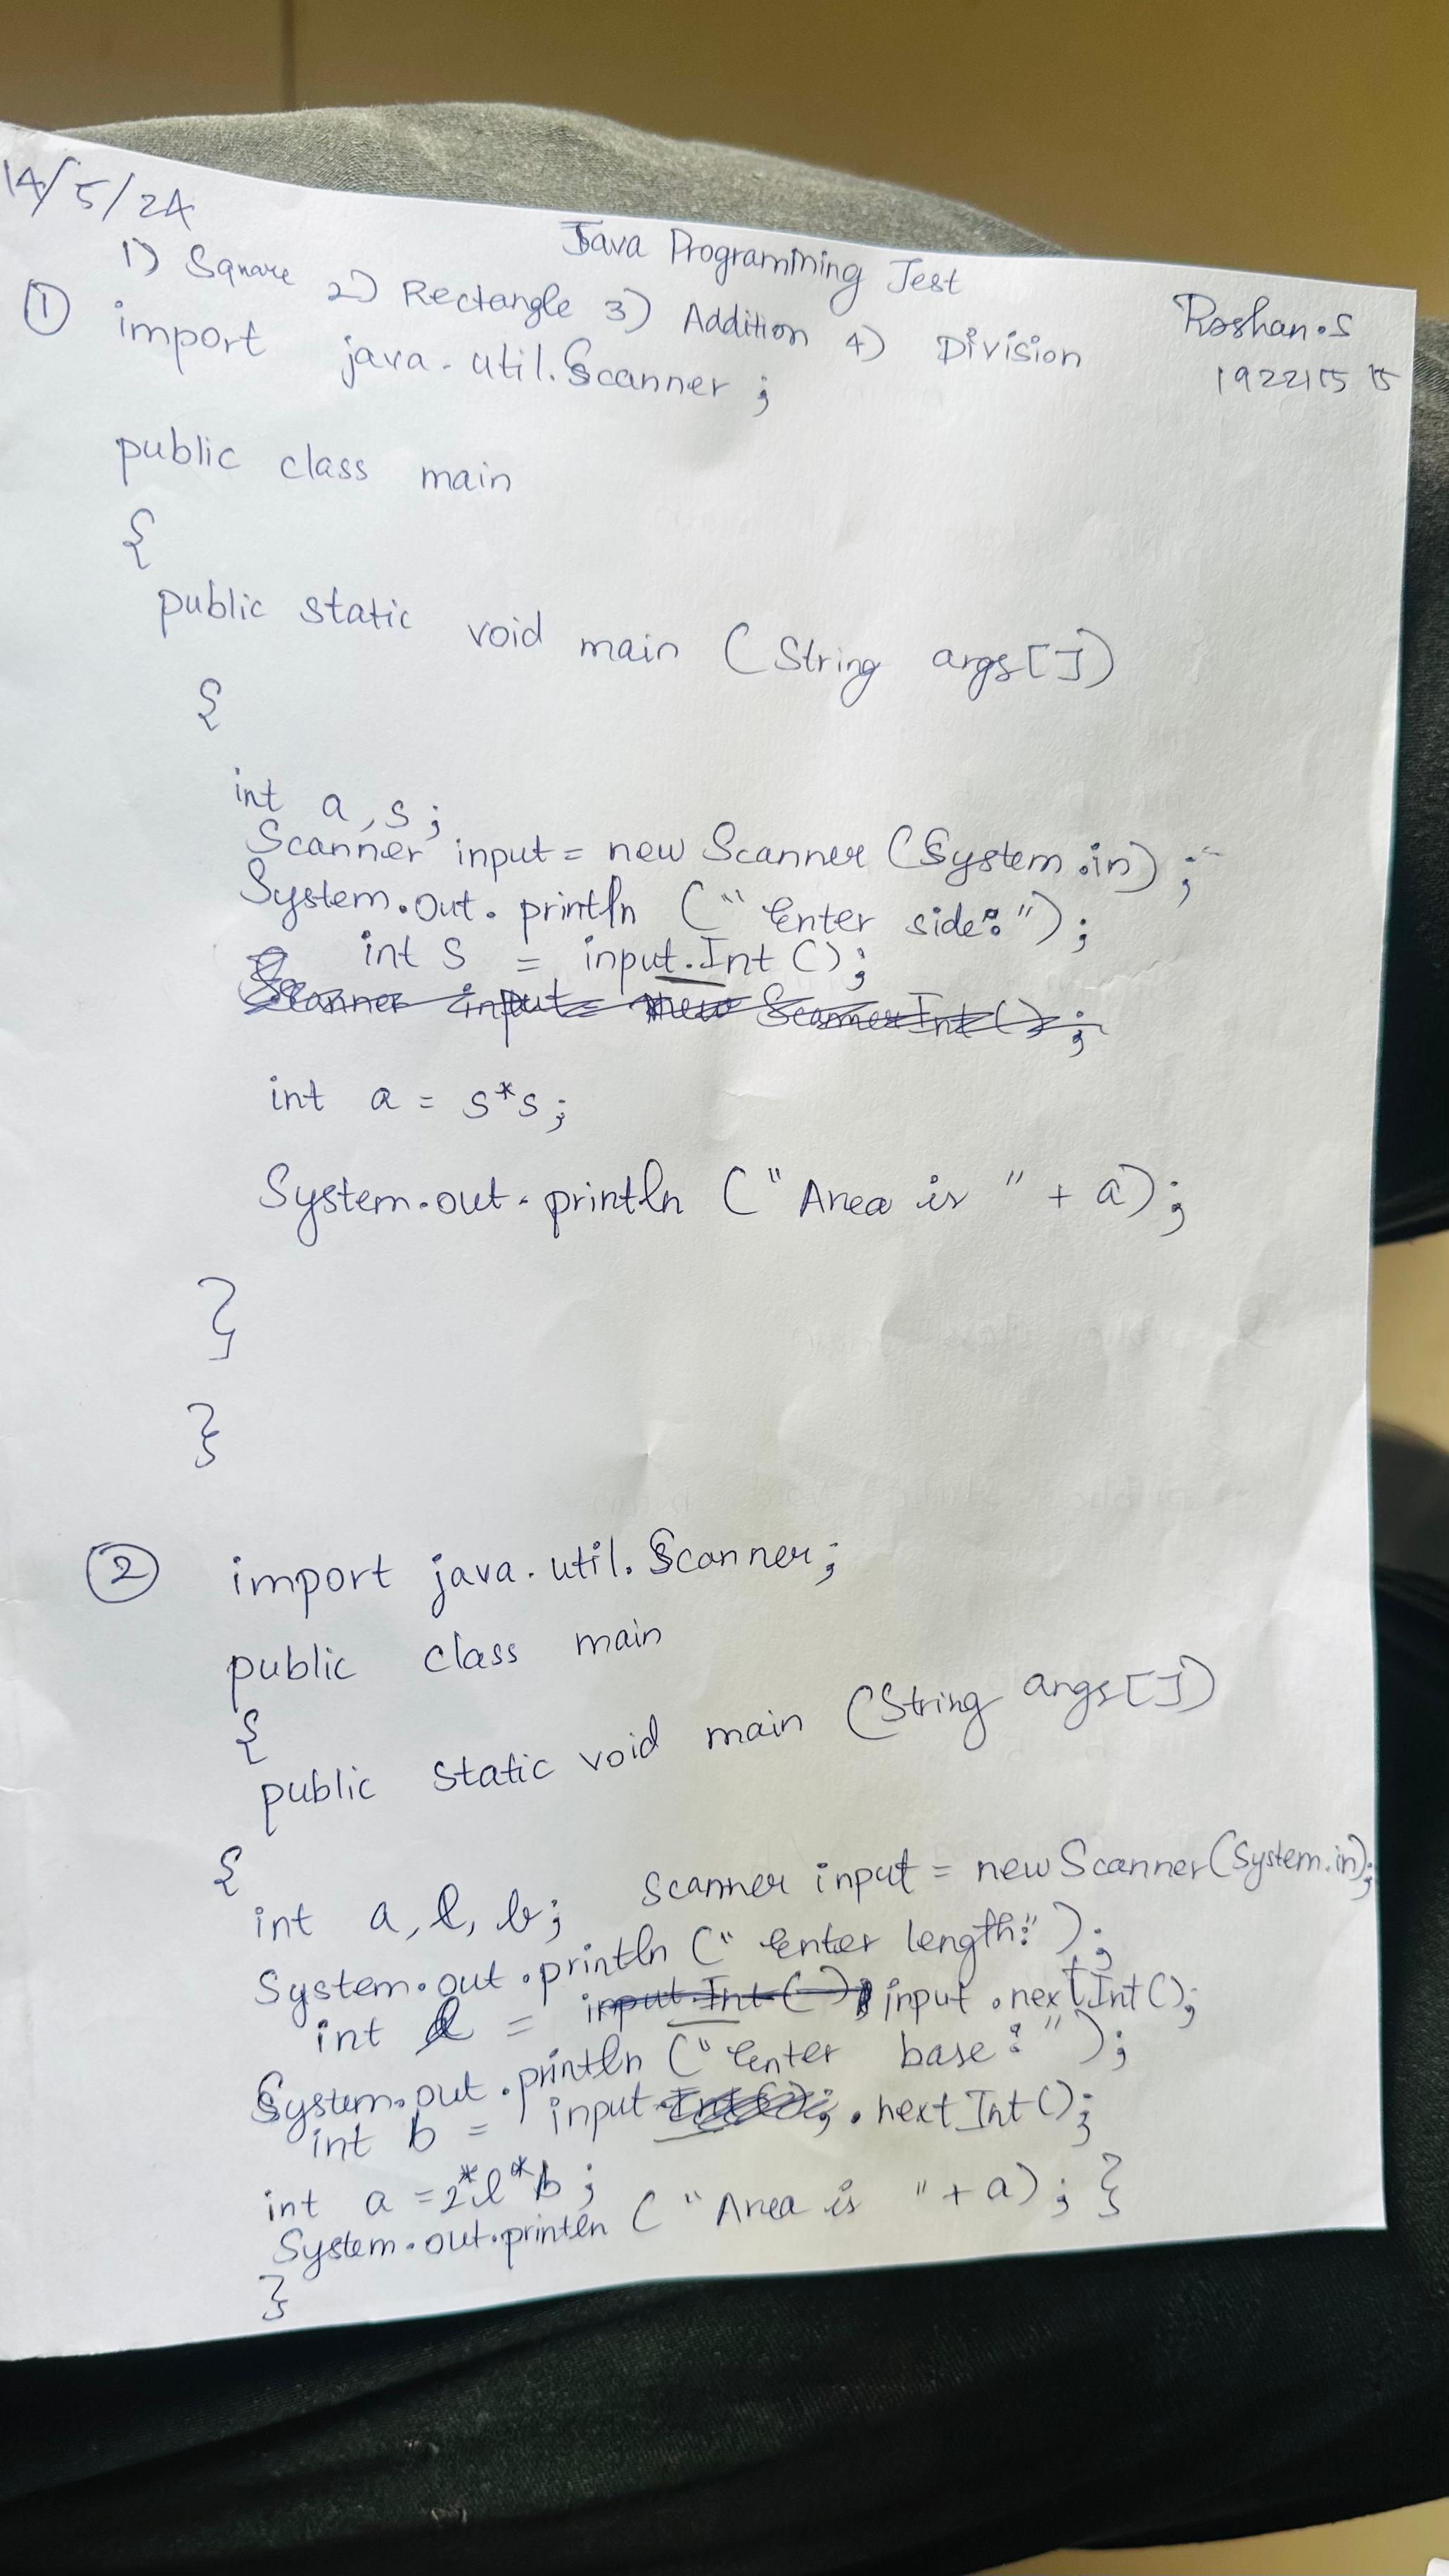 14/5/24
Java Programming Test
1) Square 2) Rectangle 3) Addition 4) Division
Roshan.S
192211515
① import java.util.Scanner;
public class main
{
public static void main (String args[])
{
int a, s;
Scanner input = new Scanner (System.in);
System.out.println ("Enter side:");
int s = input.Int();
Scanner input = new ScannerInt();
int a = s*s;
System.out.println ("Area is " + a);
}
}
② import java.util.Scanner;
public class main
{
public static void main (String args[])
{
int a, l, b; Scanner input = new Scanner(System.in);
System.out.println ("Enter length:");
int l = input.Int(); input.nextInt();
System.out.println ("Enter base:");
int b = input.Int(); .nextInt();
int a = 2*l*b;
System.out.println ("Area is " + a); }
}